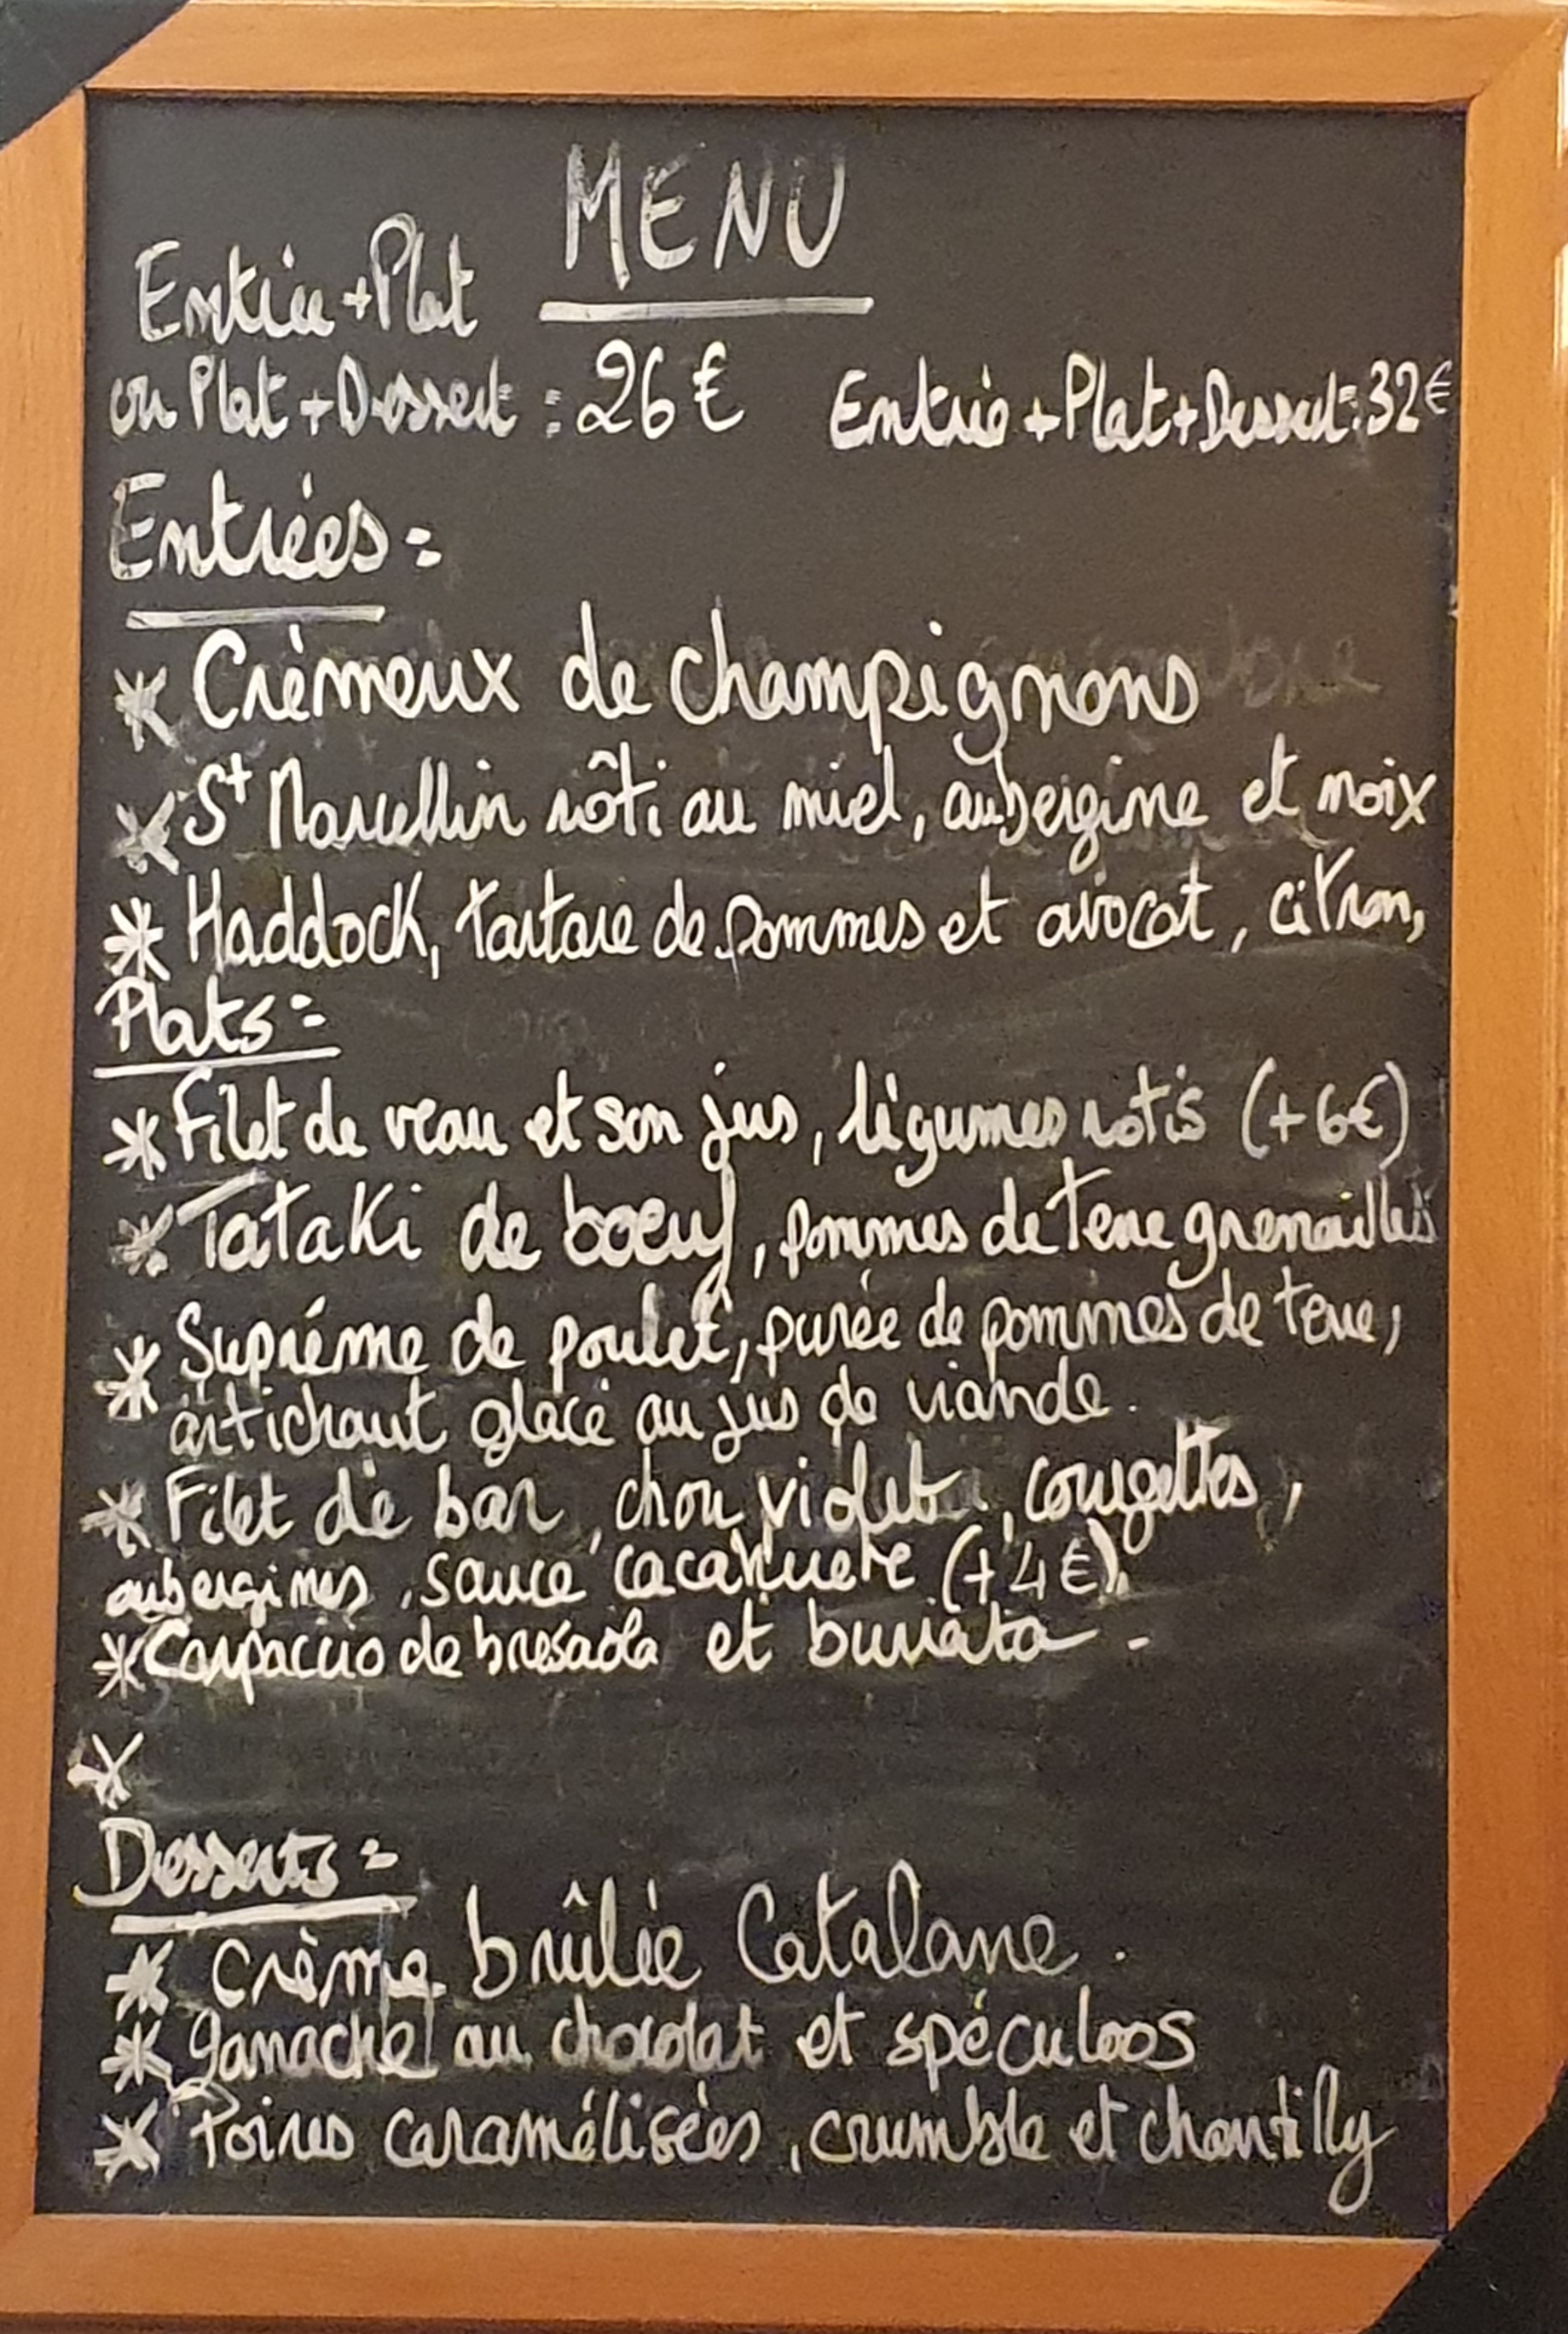 MENU
Entrée + Plat
ou Plat + Dessert : 26 €
Entrée + Plat + Dessert : 32 €
Entrées :
* Crèmeux de champignons
* St Marcellin rôti au miel, aubergine et noix
* Haddock, tartare de pommes et avocat, citron,
Plats :
* Filet de veau et son jus, légumes rotis (+ 6€)
* Tataki de boeuf, pommes de terre grenailles
* Supréme de poulet, purée de pommes de terre,
artichaut glacé au jus de viande.
* Filet de bar, chou violet, courgettes,
aubergines, sauce cacahuète (+ 4 €).
* Carpaccio de bresaola et burrata -
*
Desserts :
* Crème brûlée Catalane.
* ganache au chocolat et spéculoos
* Poires caramélisées, crumble et chantilly